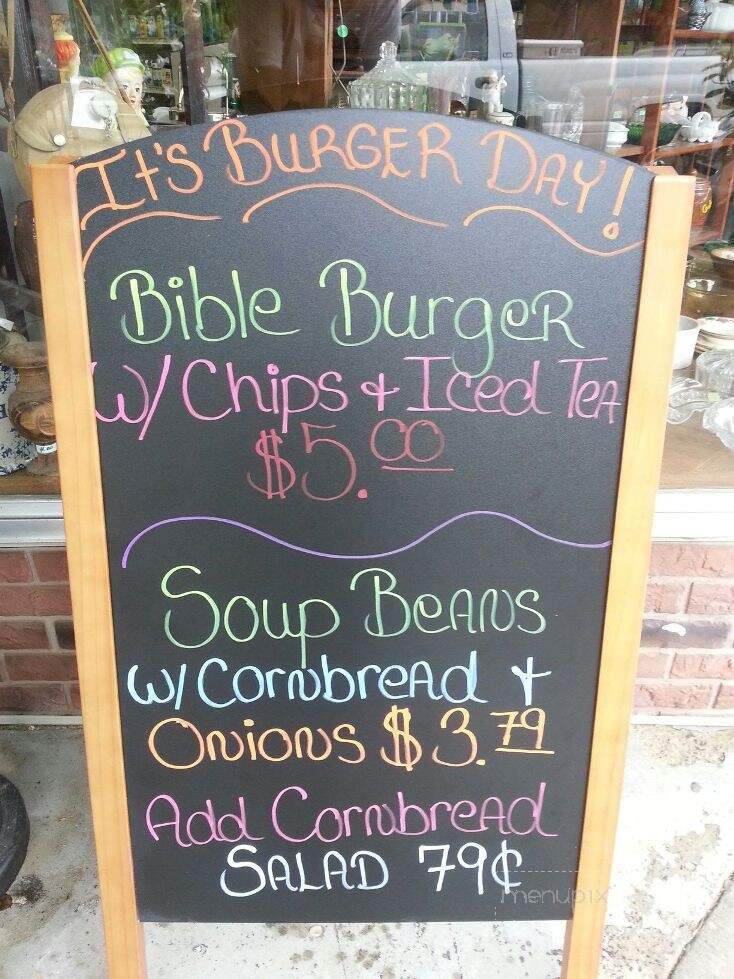 It's BURGER DAY!
Bible BurgeR
W/ Chips & Iced TeA
$5.00
Soup BeANS
W/ CornbreAd &
ONIONS $3.79
Add CornbreAd
SALAD 79¢
menupix